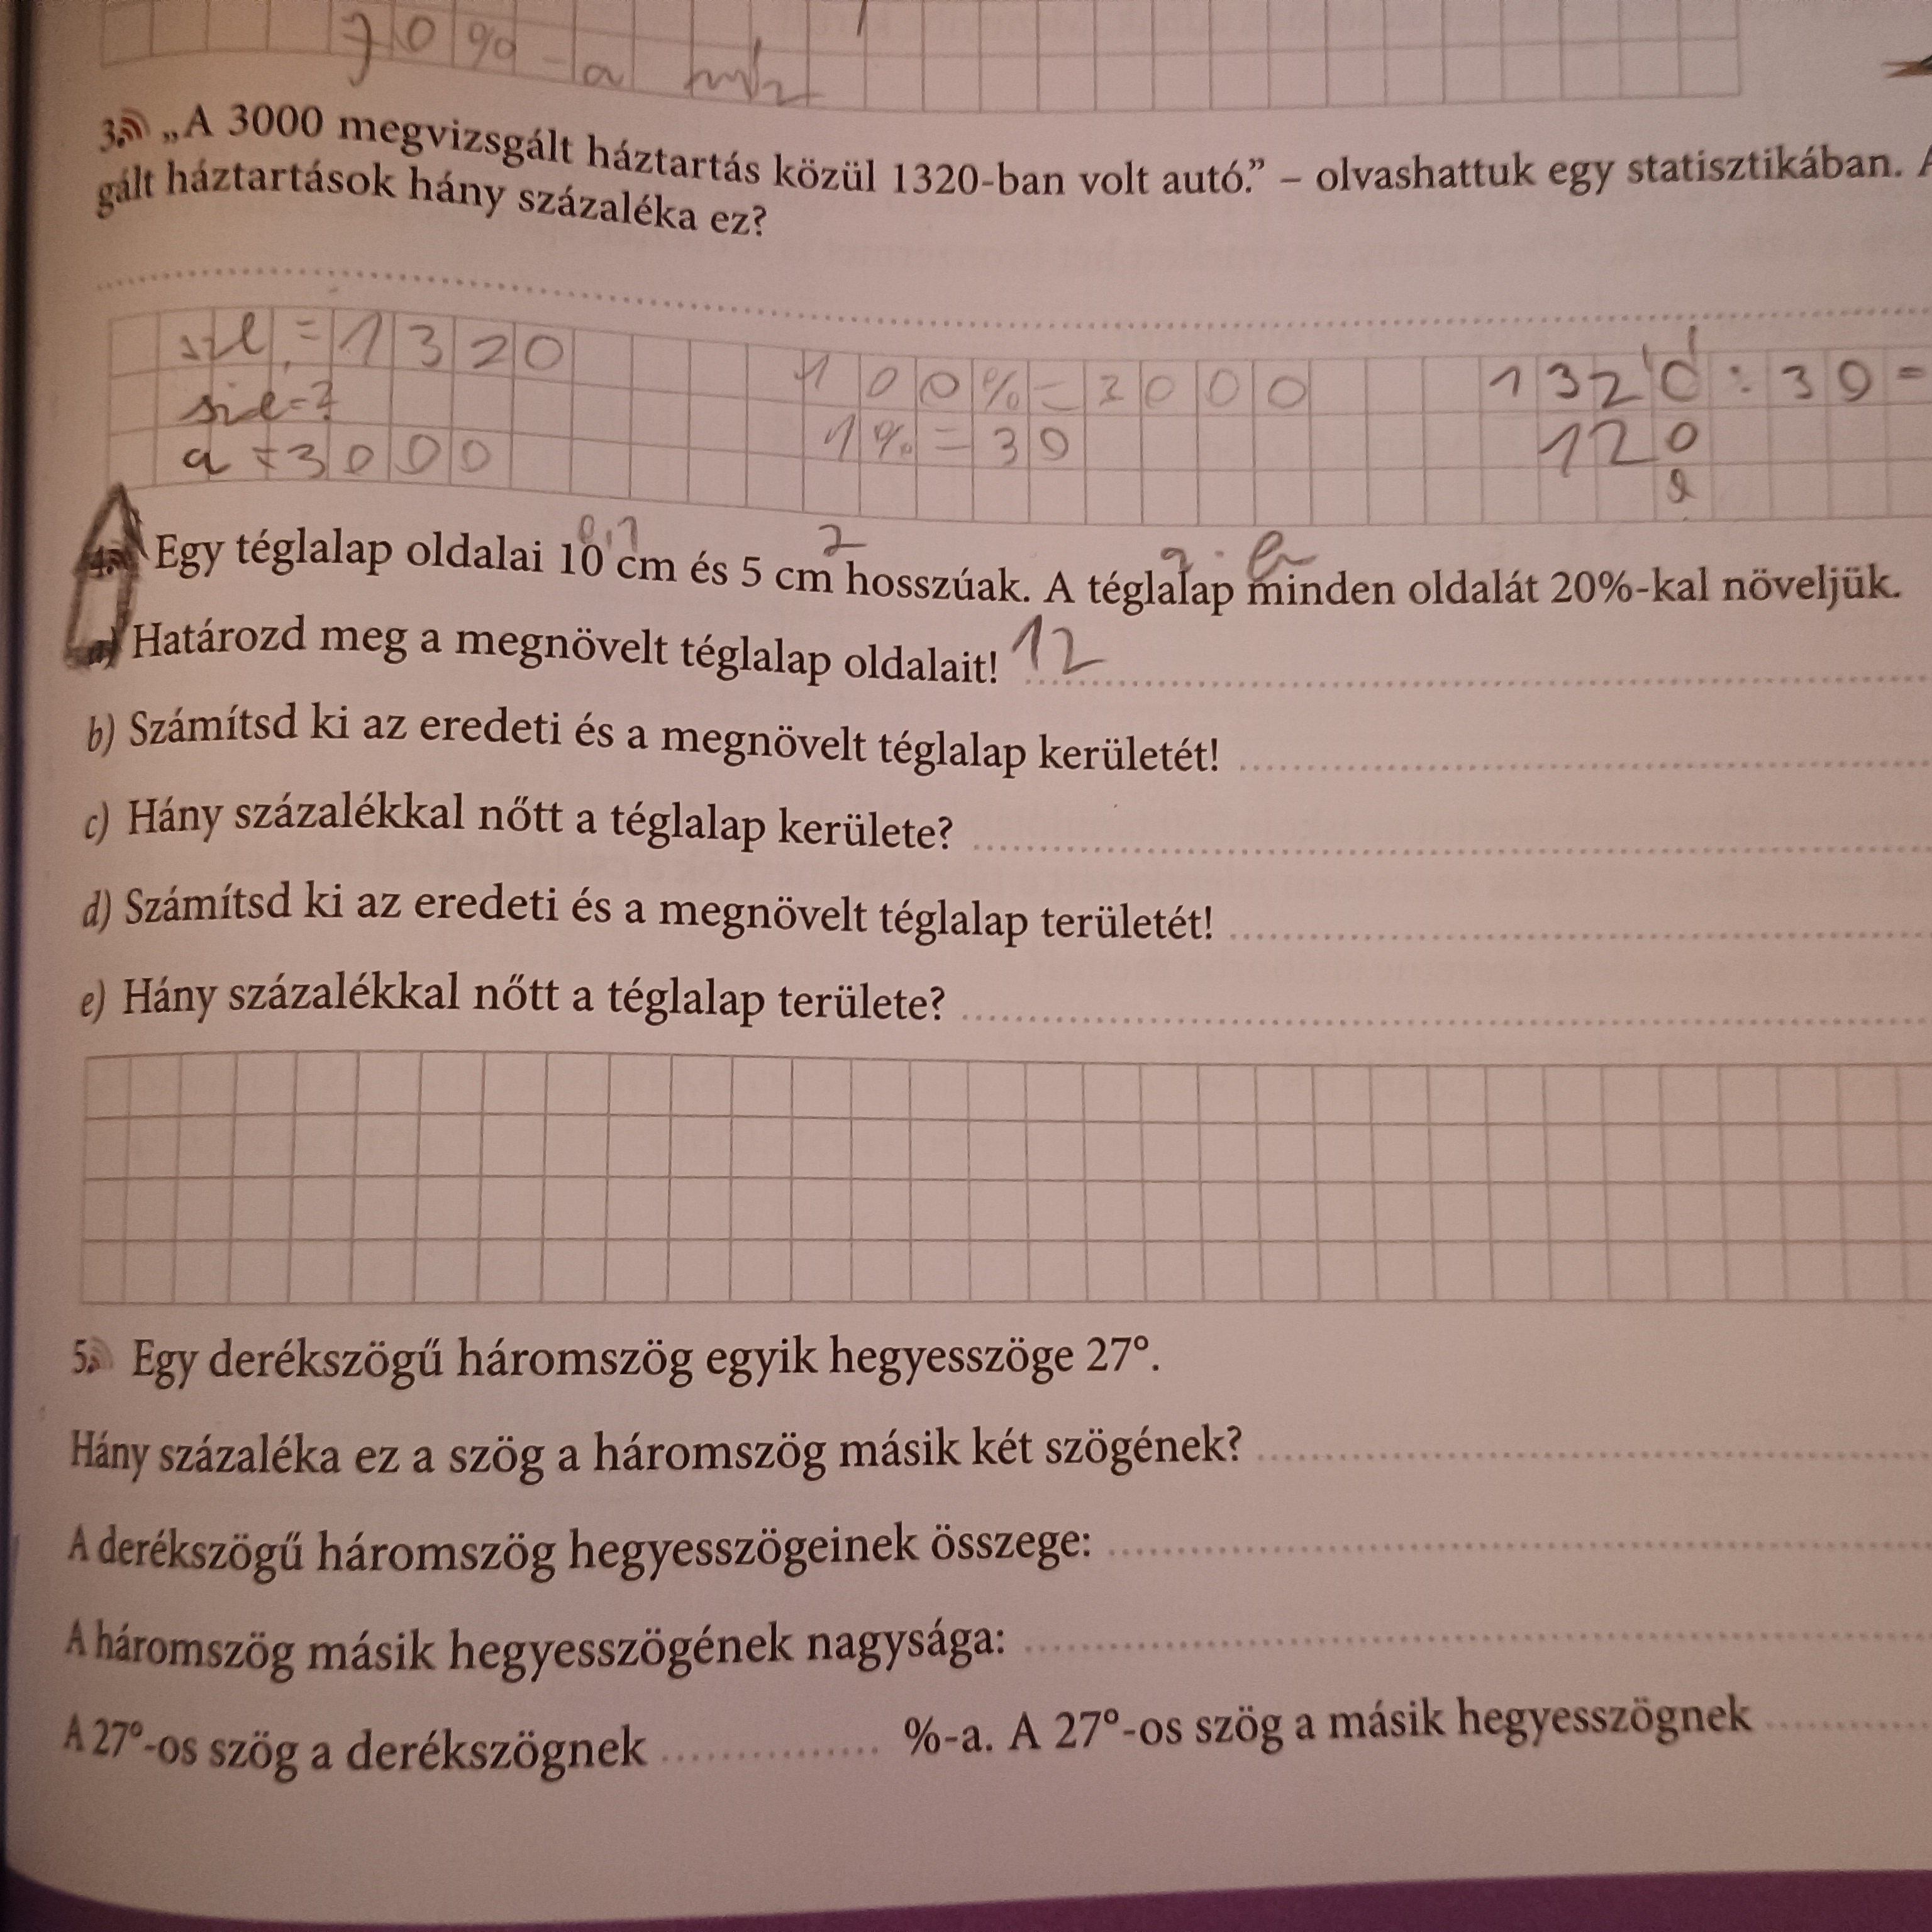 70%-a
3. „A 3000 megvizsgált háztartás közül 1320-ban volt autó.” – olvashattuk egy statisztikában. A
gált háztartások hány százaléka ez?
szé = 1320
100% = 3000
1320 : 30 =
szl = ?
1% = 30
120
a = 3000
0
0,1
2
a · b
4. Egy téglalap oldalai 10 cm és 5 cm hosszúak. A téglalap minden oldalát 20%-kal növeljük.
a) Határozd meg a megnövelt téglalap oldalait! 12
b) Számítsd ki az eredeti és a megnövelt téglalap kerületét!
c) Hány százalékkal nőtt a téglalap kerülete?
d) Számítsd ki az eredeti és a megnövelt téglalap területét!
e) Hány százalékkal nőtt a téglalap területe?
5. Egy derékszögű háromszög egyik hegyesszöge 27°.
Hány százaléka ez a szög a háromszög másik két szögének?
A derékszögű háromszög hegyesszögeinek összege:
A háromszög másik hegyesszögének nagysága:
A 27°-os szög a derékszögnek ............... %-a. A 27°-os szög a másik hegyesszögnek